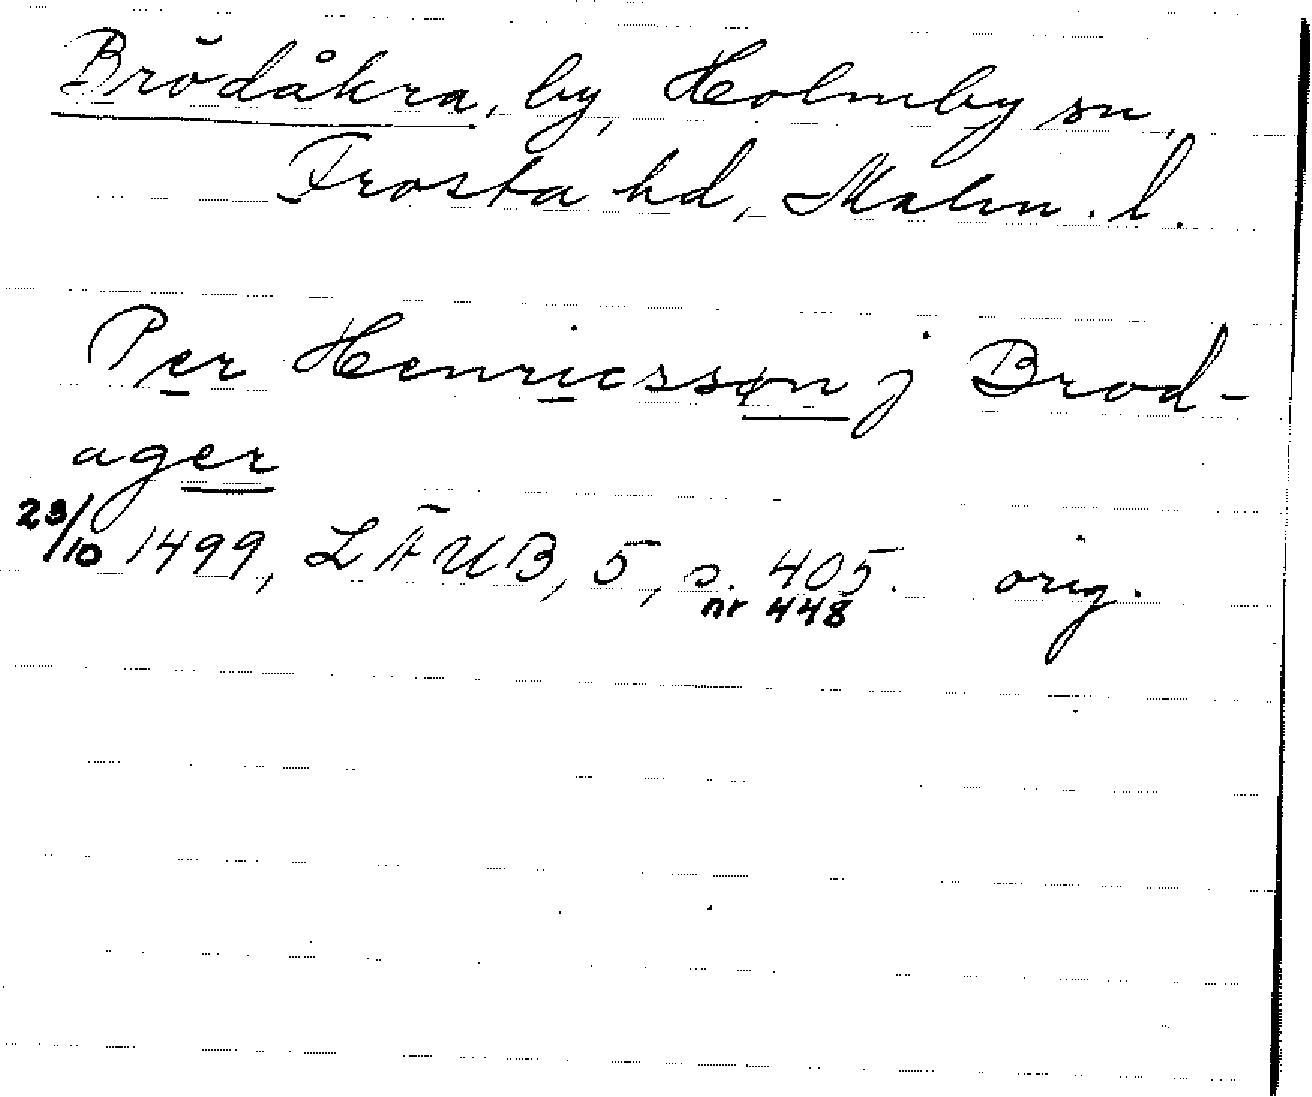 Brödåkra, by, Holmby sn,
Frosta hd, Malm. l.
Per Henricssøn j Brod-
ager
23/10 1499, LÄUB, 5, s. 405. orig.
nr 448